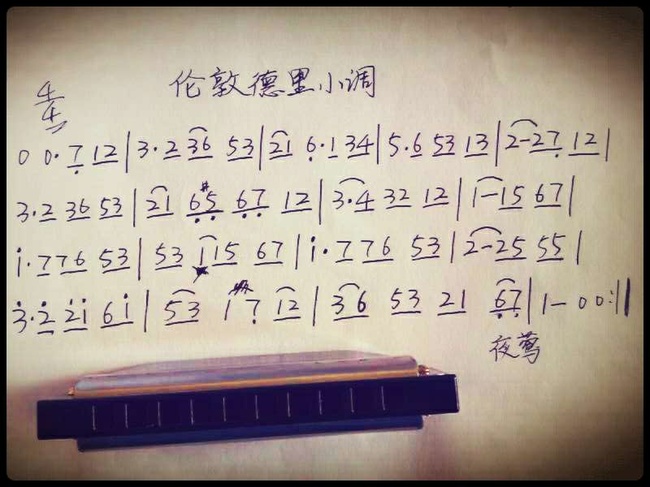 伦敦德里小调
4/4
0 0·7 12|3·2 36 53|21 6·1 34|5·6 53 13|2-27 12|
3·2 36 53|21 6#5 67 12|3·4 32 12|1-15 67|
i·7 76 53|53 115 67|i·7 76 53|2-25 55|
3·2 2i 6i|53 1 7 12|36 53 21 67|1- 00:||
夜莺